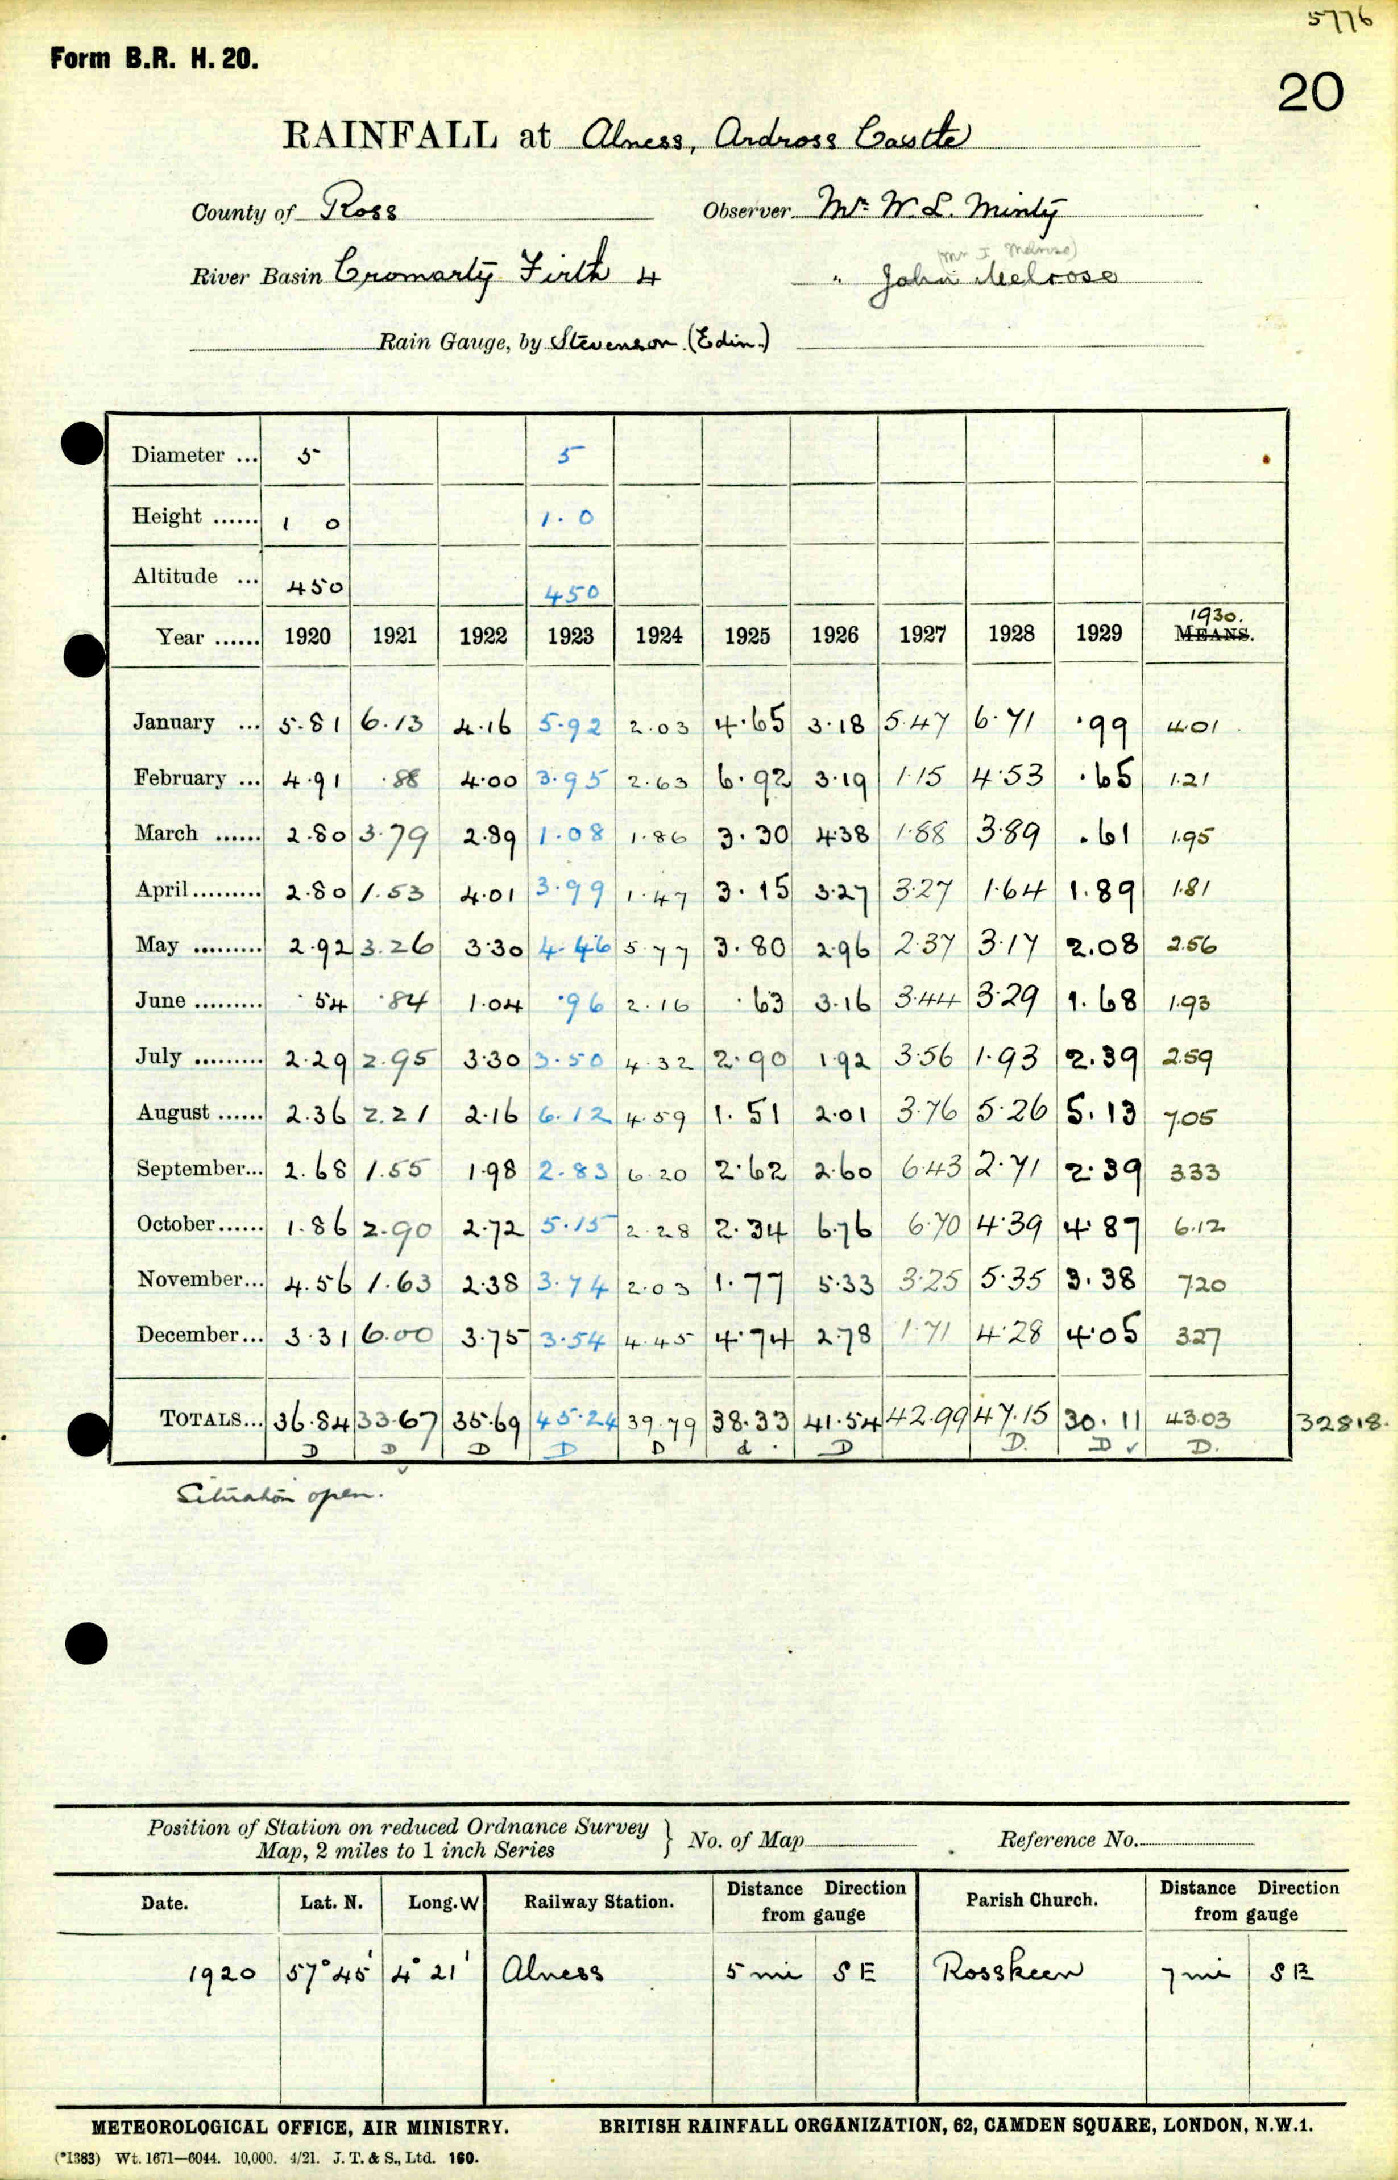 5776
Form B.R. H. 20.
20
RAINFALL at Alness, Ardross Castle
County of Ross Observer Mr. W. L. Minty
(Mr J Melrose)
River Basin Cromarty Firth 4 " John Melrose
Rain Gauge, by Stevenson (Edin.)
Diameter ... 5 5
Height ...... 1 0 1.0
Altitude ... 450 450
1930.
Year ...... 1920 1921 1922 1923 1924 1925 1926 1927 1928 1929 MEANS.
January ... 5.81 6.13 4.16 5.92 2.03 4.65 3.18 5.47 6.71 .99 4.01
February ... 4.91 .88 4.00 3.95 2.63 6.92 3.19 1.15 4.53 .65 1.21
March ...... 2.80 3.79 2.89 1.08 1.86 3.30 4.38 1.88 3.89 .61 1.95
April......... 2.80 1.53 4.01 3.99 1.47 3.15 3.27 3.27 1.64 1.89 1.81
May ......... 2.92 3.26 3.30 4.46 5.77 3.80 2.96 2.37 3.17 2.08 2.56
June ......... .54 .84 1.04 .96 2.16 .63 3.16 3.44 3.29 1.68 1.93
July ......... 2.29 2.95 3.30 3.50 4.32 2.90 1.92 3.56 1.93 2.39 2.59
August ...... 2.36 2.21 2.16 6.12 4.59 1.51 2.01 3.76 5.26 5.13 7.05
September... 2.68 1.55 1.98 2.83 6.20 2.62 2.60 6.43 2.71 2.39 3.33
October...... 1.86 2.90 2.72 5.15 2.28 2.34 6.76 6.70 4.39 4.87 6.12
November... 4.56 1.63 2.38 3.74 2.03 1.77 5.33 3.25 5.35 3.38 7.20
December... 3.31 6.00 3.75 3.54 4.45 4.74 2.78 1.71 4.28 4.05 3.27
TOTALS... 36.84 33.67 35.69 45.24 39.79 38.33 41.54 42.99 47.15 30.11 43.03 328.18.
D D D D D d. D D. D ✓ D.
Situation open.
Position of Station on reduced Ordnance Survey
Map, 2 miles to 1 inch Series } No. of Map Reference No.
Date. Lat. N. Long. W Railway Station. Distance from gauge Direction Parish Church. Distance from gauge Direction
1920 57° 45' 4° 21' Alness 5 mi S E Rosskeen 7 mi S E
METEOROLOGICAL OFFICE, AIR MINISTRY. BRITISH RAINFALL ORGANIZATION, 62, CAMDEN SQUARE, LONDON, N.W.1.
(*1383) Wt. 1671—6044. 10,000. 4/21. J. T. & S., Ltd. 160.